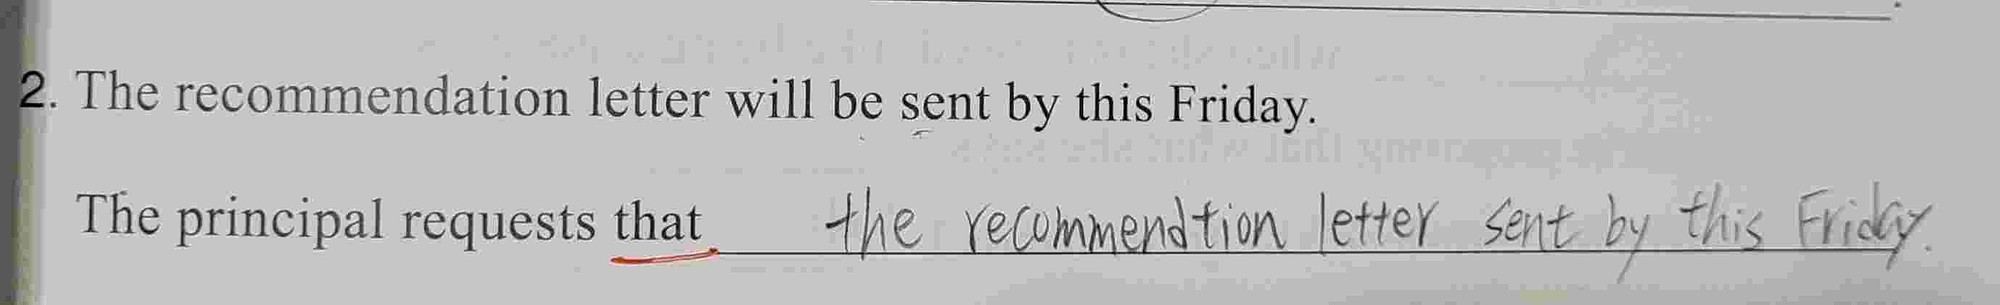 2. The recommendation letter will be sent by this Friday.
The principal requests that the recommendtion letter sent by this Friday.